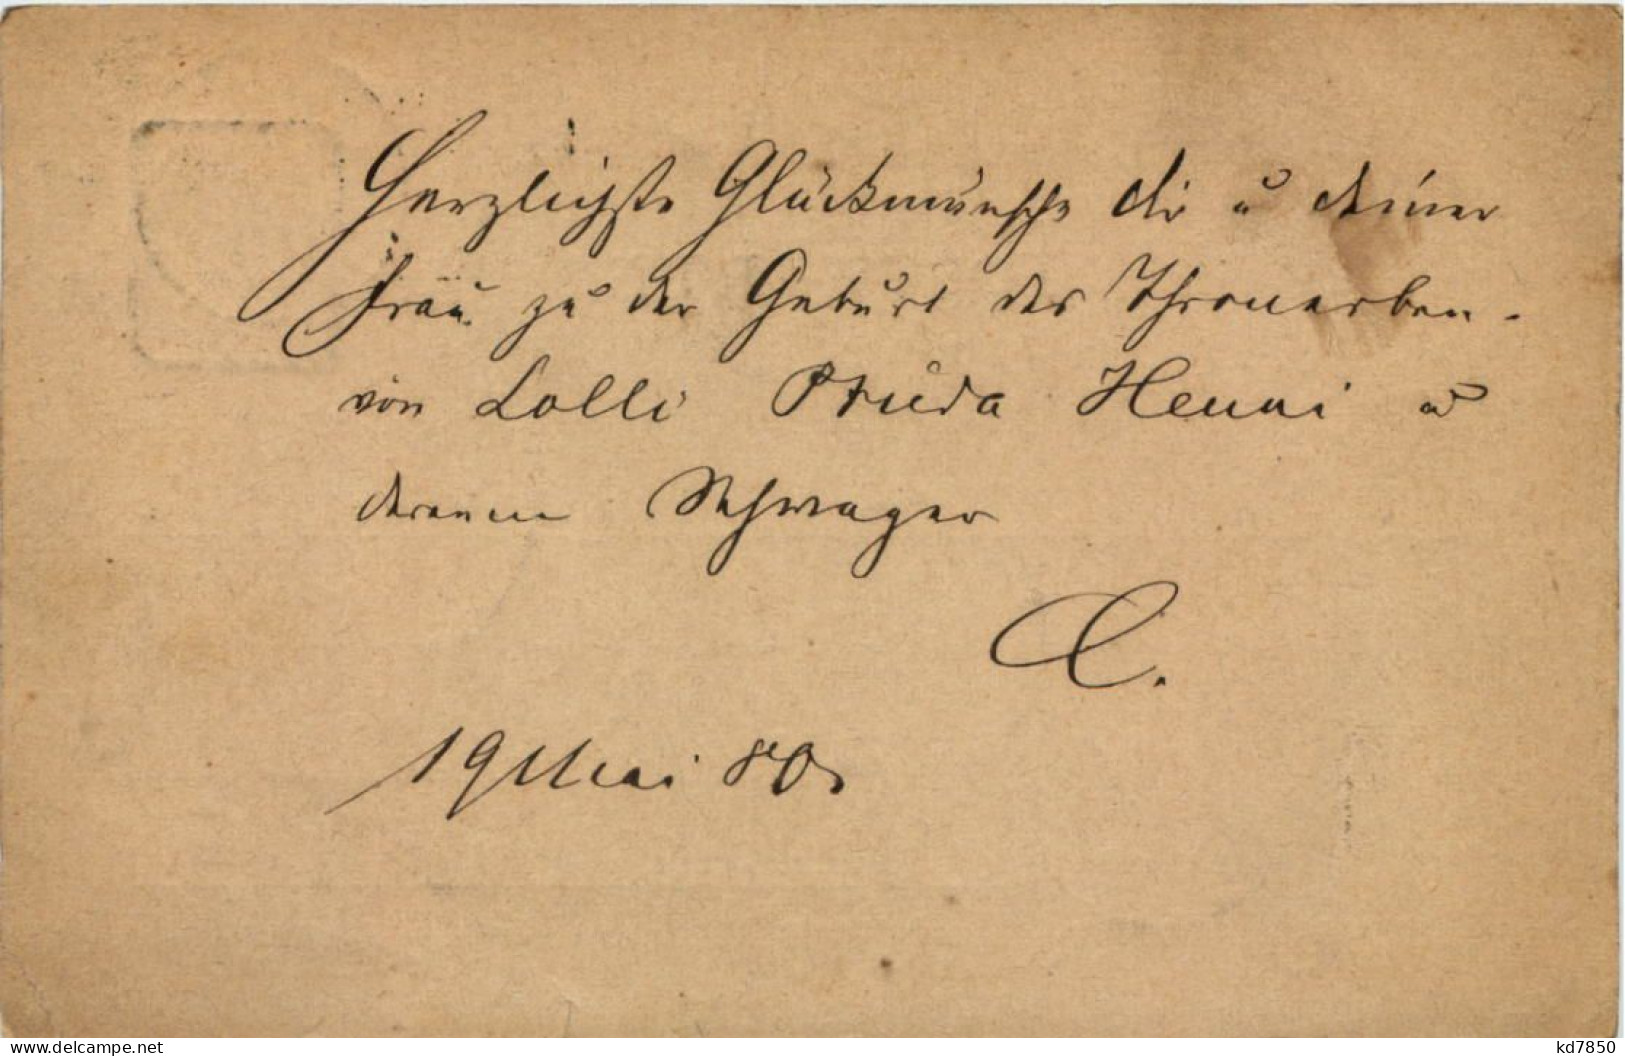 Herzlichste Glückwünsche dir u deiner
Frau zu der Geburt des Thronerben.
von Lolli Henni u
deinem Schwager
C.
19 Mai 80.
www.delcampe.net
kd7850